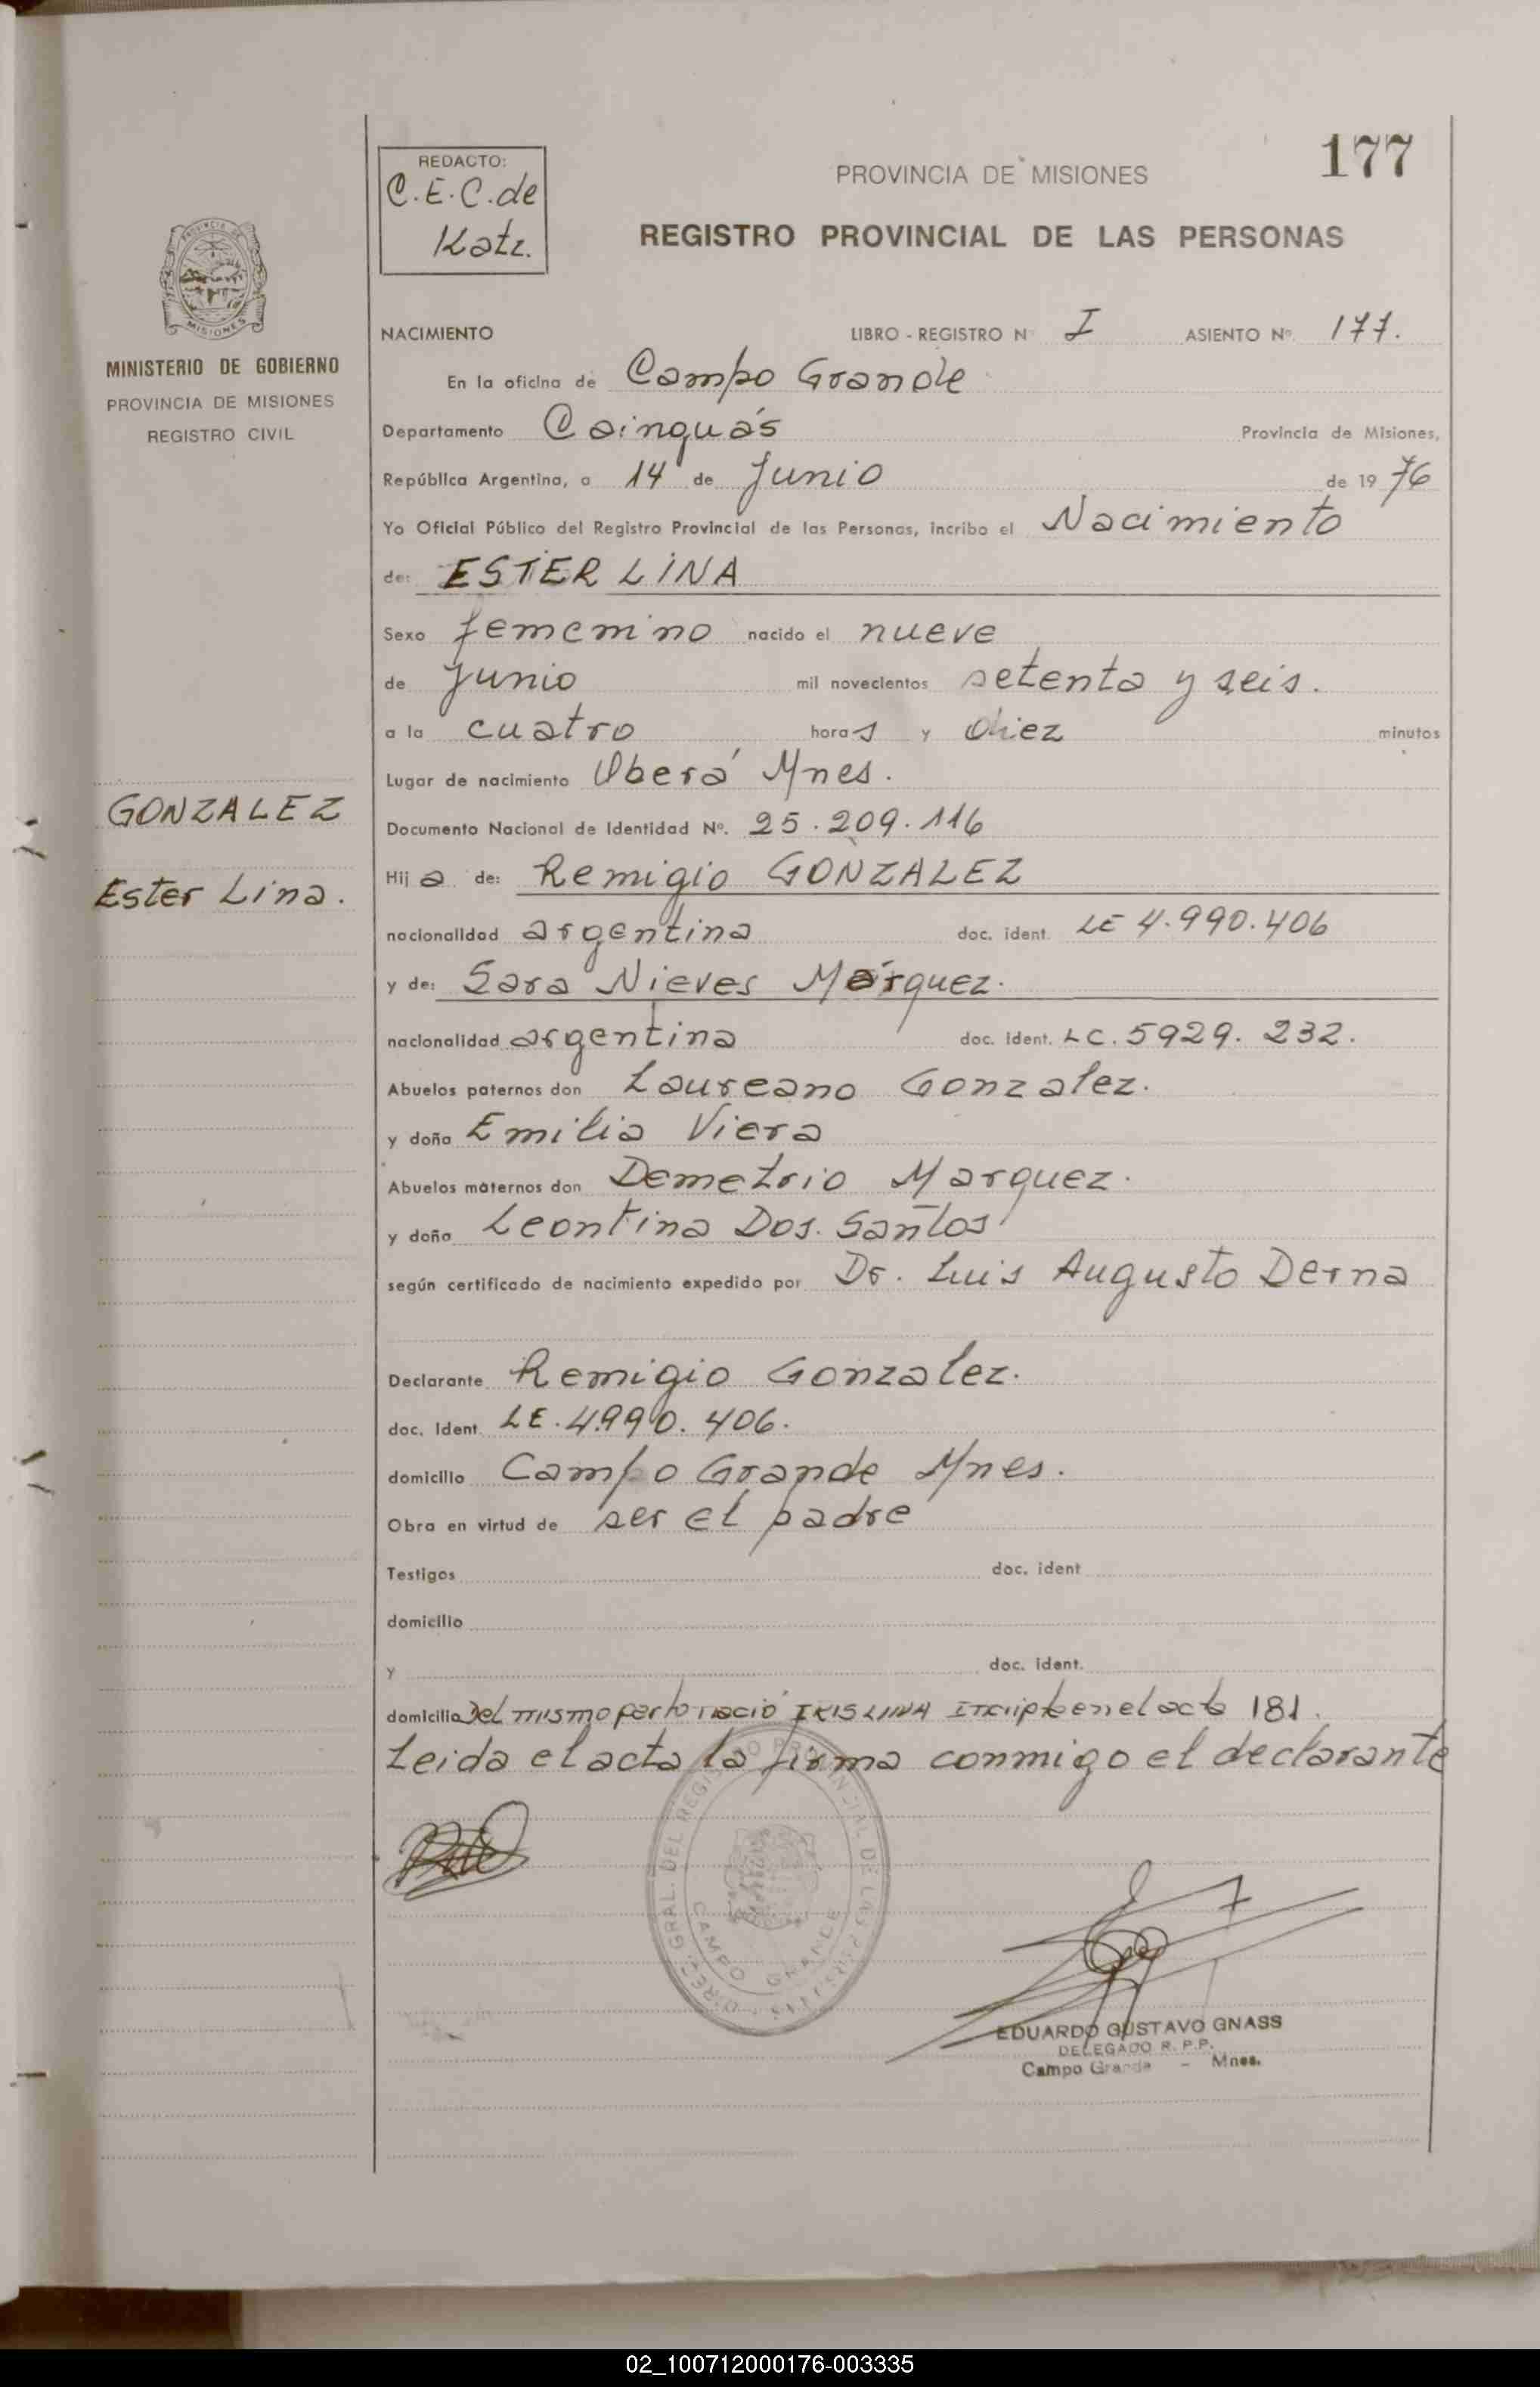 REDACTO:
C.E.C. de
Katz.
PROVINCIA DE MISIONES
177
REGISTRO PROVINCIAL DE LAS PERSONAS
MISIONES
MINISTERIO DE GOBIERNO
PROVINCIA DE MISIONES
REGISTRO CIVIL
NACIMIENTO LIBRO - REGISTRO N I ASIENTO Nº. 177.
En la oficina de Campo Grande
Departamento Cainguás Provincia de Misiones,
República Argentina, a 14 de Junio de 19 76
Yo Oficial Público del Registro Provincial de las Personas, incribo el Nacimiento
de: ESTER LINA
Sexo femenino nacido el nueve
de Junio mil novecientos setenta y seis.
a la cuatro horas y diez minutos
Lugar de nacimiento Oberá Mnes.
GONZALEZ
Documento Nacional de Identidad Nº. 25.209.116
Hija de: Remigio GONZALEZ
Ester Lina.
nacionalidad argentina doc. ident. LE 4.990.406
y de: Sara Nieves Márquez.
nacionalidad argentina doc. ident. LC. 5929.232.
Abuelos paternos don Laureano Gonzalez.
y doña Emilia Viera
Abuelos maternos don Demetrio Marquez.
y doña Leontina Dos. Santos
según certificado de nacimiento expedido por Dr. Luis Augusto Derna
Declarante Remigio Gonzalez.
doc. ident. LE. 4990.406.
domicilio Campo Grande Mnes.
Obra en virtud de ser el padre
Testigos doc. ident
domicilio
y doc. ident.
domicilio Del mismo parto nació IRIS LINA Incripta en el acta 181.
Leida el acta la firma conmigo el declarante
DIREC. GRAL. DEL REGISTRO PROVINCIAL DE LAS PERSONAS
CAMPO GRANDE
EDUARDO GUSTAVO GNASS
DELEGADO R.P.P.
Campo Grande - Mnes.
02_100712000176-003335